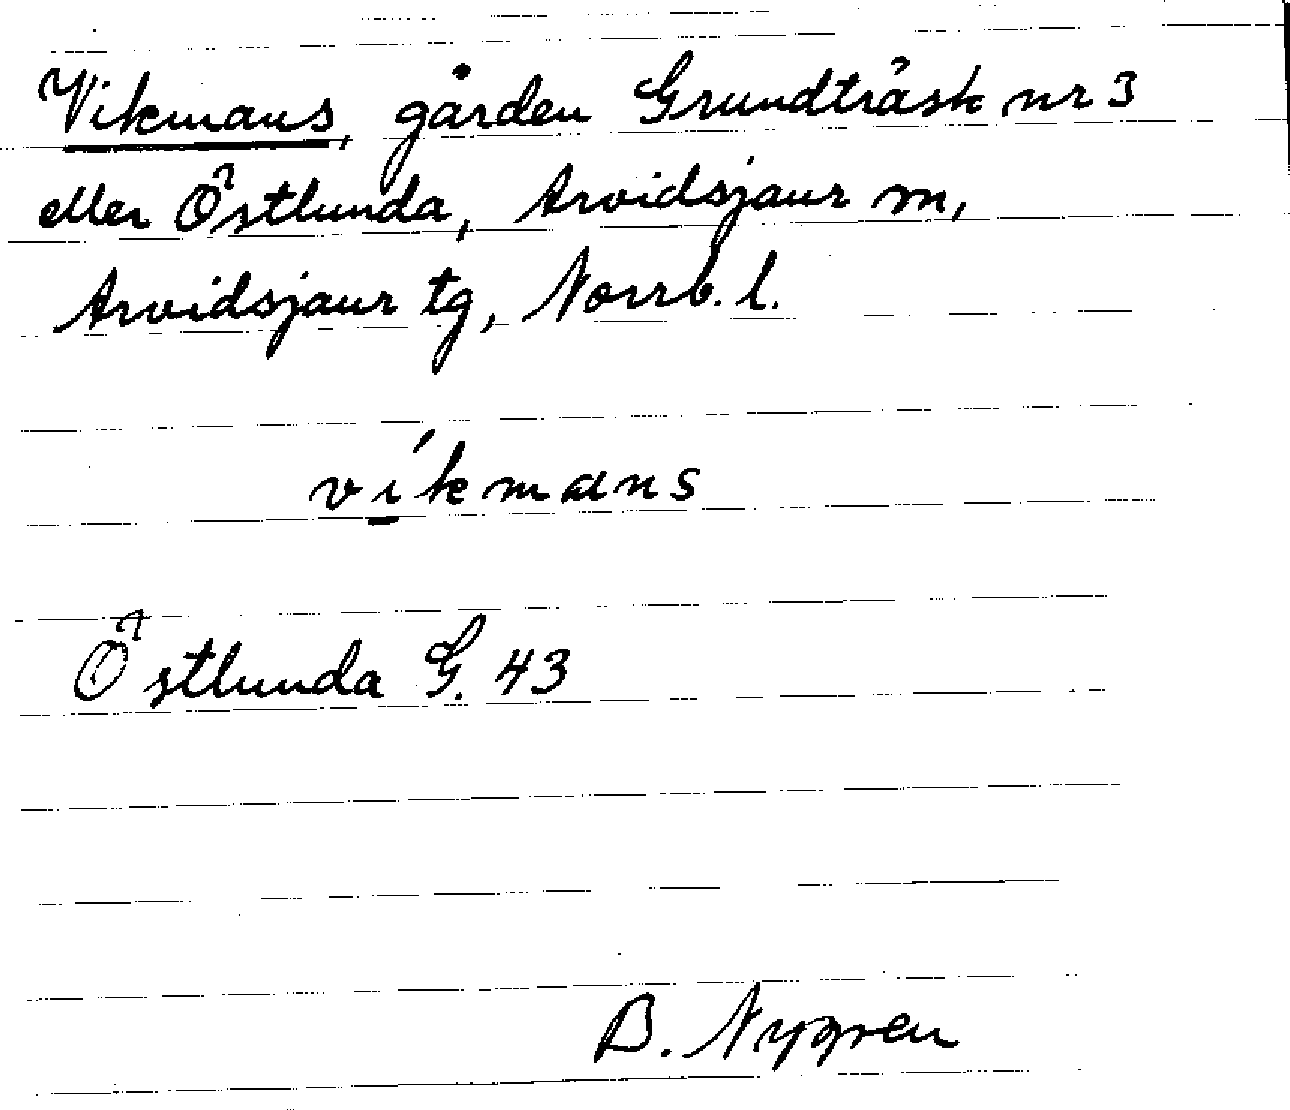 Vikmans, gården Grundträsk nr 3
eller Östlunda, Arvidsjaur m,
Arvidsjaur tg, Norrb. l.
víkmans
Östlunda G. 43
B. Nygren